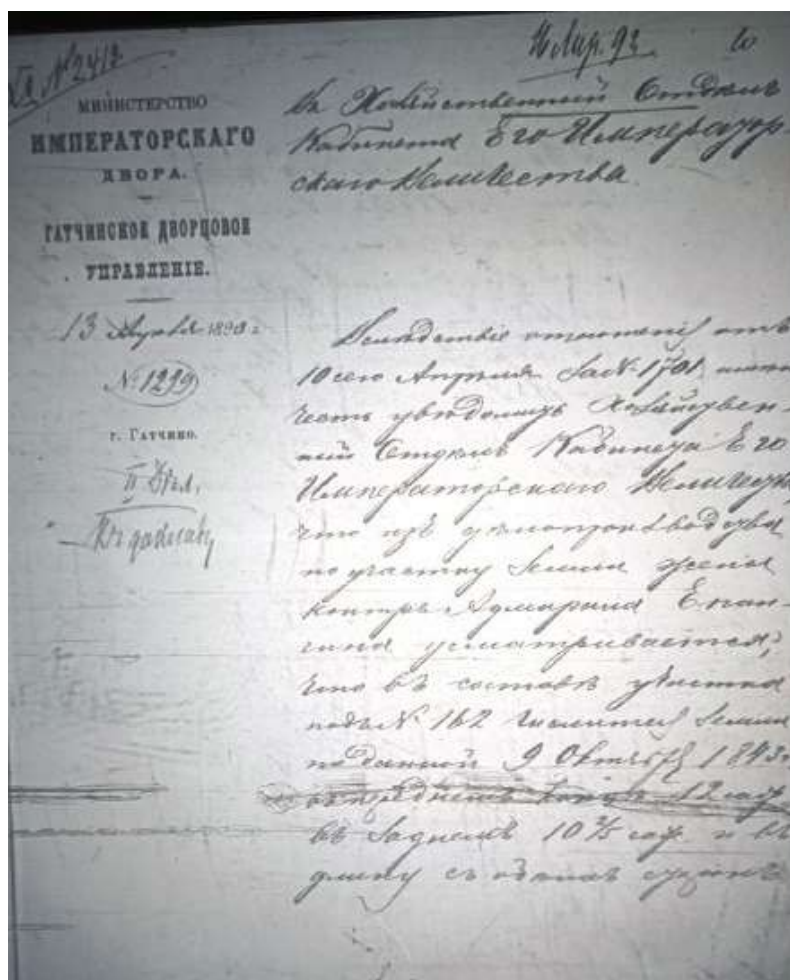 № 2413
МИНИСТЕРСТВО
ИМПЕРАТОРСКАГО
ДВОРА.
ГАТЧИНСКОЕ ДВОРЦОВОЕ
УПРАВЛЕНІЕ.
13 Апрѣля 1890 г.
№ 1299
г. Гатчино.
II Дѣл.
Къ докладу
10
Въ Хозяйственный Отдѣлъ
Кабинета Его Император-
скаго Величества
Вслѣдствіе отношенія отъ
10 сего Апрѣля за № 1701, имѣю
честь увѣдомить Хозяйствен-
ный Отдѣлъ Кабинета Его
Императорскаго Величества,
что изъ дѣлопроизводства
по участку земли жены
Контръ-Адмирала Епан-
чина усматривается,
что въ составъ участка
подъ № 162 числится земли
по данной 9 Октября 1843 г.
въ переднемъ концѣ 12 саж.
въ заднемъ 10 ⅔ саж. и въ
длину съ одной стороны